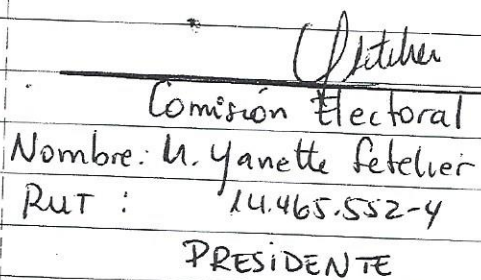 Comisión Electoral
Nombre: M. Yanette Letelier
RUT : 14.465.552-4
PRESIDENTE